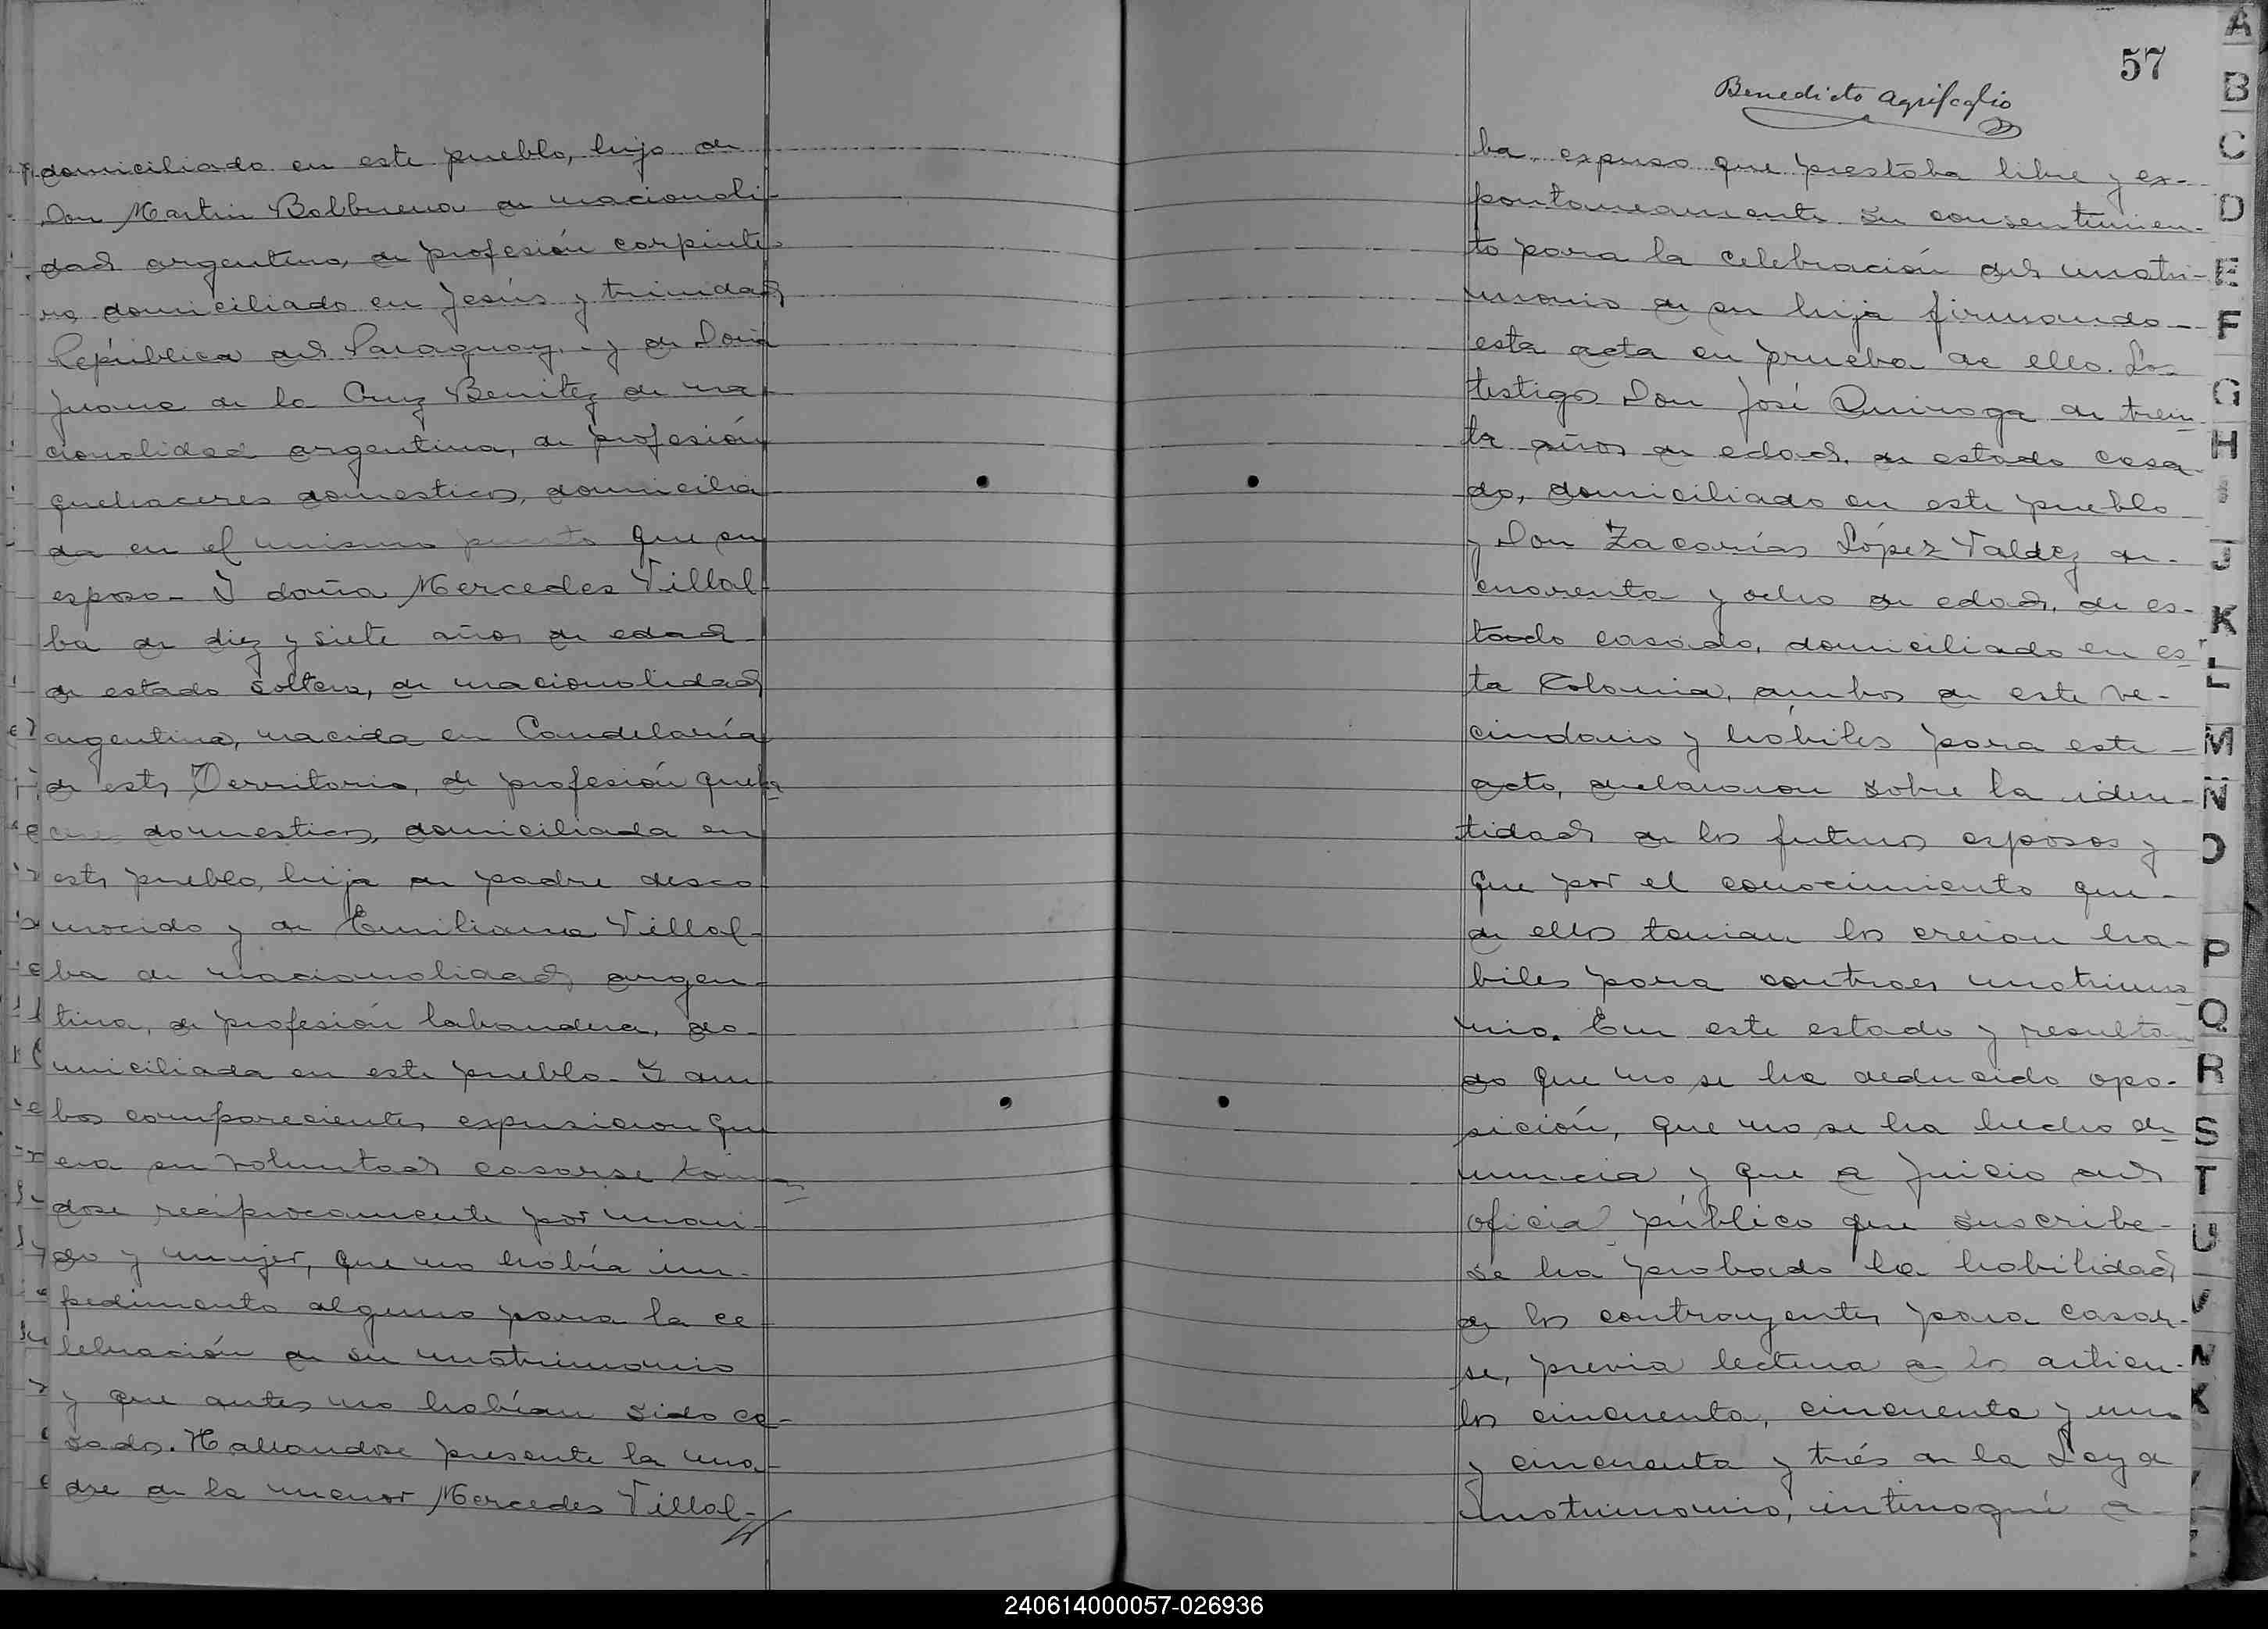 domiciliado en este pueblo, hijo de
Don Martin Balbuena de nacionali-
dad argentino, de profesión carpinte-
ro domiciliado en Jesús y trinidad
República del Paraguay. y de Doña
Juana de la Cruz Benitez de na-
cionalidad argentina, de profesión
quehaceres domesticos, domicilia
da en el mismo punto que su
esposo - Y doña Mercedes Villal-
ba de diez y siete años de edad
de estado soltera, de nacionalidad
argentina, nacida en Candelaría
de este Territorio, de profesión queha
ceres domesticos, domiciliada en
este pueblo, hija de padre desco-
nocido y de Emiliana Villal-
ba de nacionalidad argen-
tina, de profesión labandera, do-
miciliada en este pueblo - Y am-
bos comparecientes expusieron que
era su voluntad casarse toman
dose reciprocamente por mari-
do y mujer, que no había im-
pedimento alguno para la ce-
lebración de su matrimonio
y que antes no habían sido ca-
sados. Hallandose presente la ma-
dre de la menor Mercedes Villal-
57
Benedicto Agrifoglio
ba, expuso que prestaba libre y ex-
pontaneamente su consentimien-
to para la celebración del matri-
monio de su hija firmando -
esta acta en prueba de ello. Los
testigos Don José Quiroga de trein
ta años de edad, de estado casa-
do, domiciliado en este pueblo
y Don Zacarías López Valdez de -
cuarenta y ocho de edad, de es-
tado casado, domiciliado en es-
ta Colonia, ambos de este ve-
cindario y hábiles para este -
acto, declararon sobre la iden-
tidad de los futuros esposos y
que por el conocimiento que -
de ellos tenian los creian ha-
biles para contraer matrimo
nio. En este estado y resultan
do que no se ha deducido opo-
sición, que no se ha hecho de
nuncia y que a juicio del
oficial público que suscribe -
se ha probado la habilidad
de los contrayentes para casar-
se, previa lectura de los articu-
los cincuenta, cincuenta y uno
y cincuenta y trés de la Ley de
matrimonio, interrogué a -
240614000057-026936